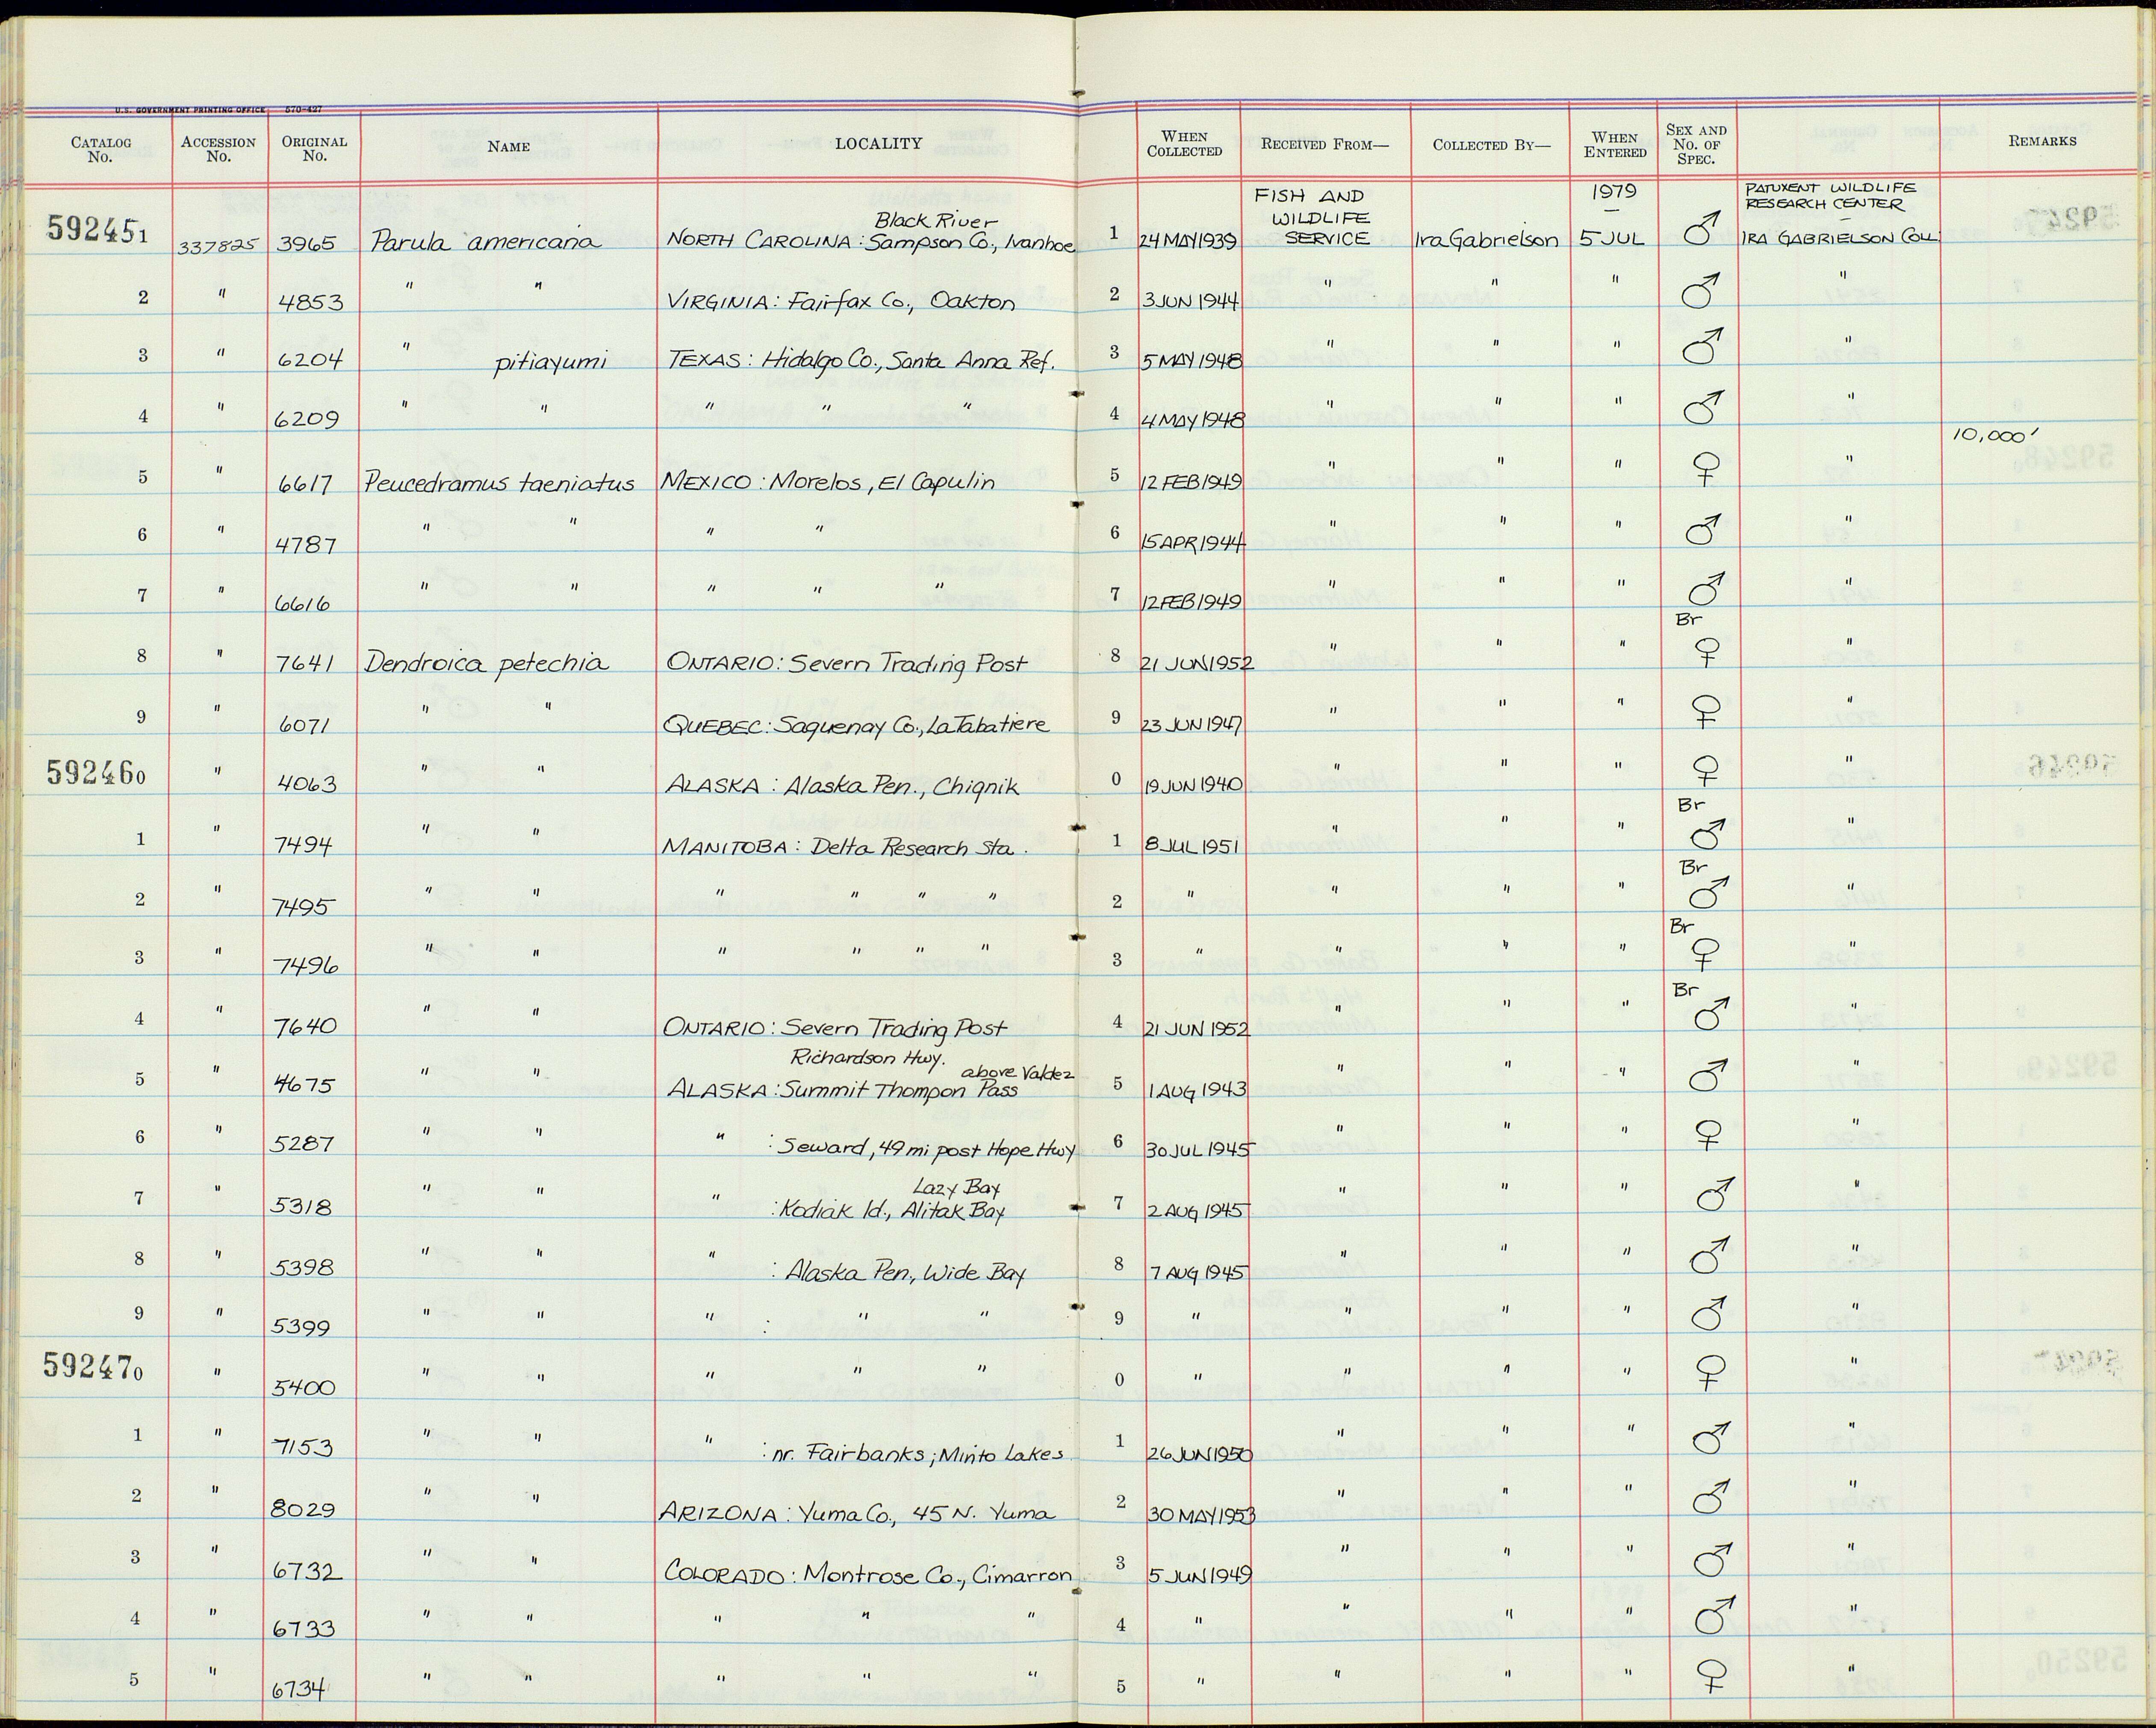 U.S. GOVERNMENT PRINTING OFFICE 570-427
CATALOG No. ACCESSION No. ORIGINAL No. NAME LOCALITY WHEN COLLECTED RECEIVED FROM— COLLECTED BY— WHEN ENTERED SEX AND No. OF SPEC. REMARKS
592451 337825 3965 Parula americana NORTH CAROLINA: Black River Sampson Co., Ivanhoe 1 24 MAY 1939 FISH AND WILDLIFE SERVICE Ira Gabrielson 1979 – 5 JUL ♂ PATUXENT WILDLIFE RESEARCH CENTER – IRA GABRIELSON COLL
2 " 4853 " " VIRGINIA: Fairfax Co., Oakton 2 3 JUN 1944 " " " ♂ "
3 " 6204 " pitiayumi TEXAS: Hidalgo Co., Santa Anna Ref. 3 5 MAY 1948 " " " ♂ "
4 " 6209 " " " " " 4 4 MAY 1948 " " " ♂ "
5 " 6617 Peucedramus taeniatus MEXICO: Morelos, El Capulin 5 12 FEB 1949 " " " ♀ " 10,000'
6 " 4787 " " " " 6 15 APR 1944 " " " ♂ "
7 " 6616 " " " " " 7 12 FEB 1949 " " " ♂ "
8 " 7641 Dendroica petechia ONTARIO: Severn Trading Post 8 21 JUN 1952 " " " Br ♀ "
9 " 6071 " " QUEBEC: Saguenay Co., La Tabatiere 9 23 JUN 1947 " " " ♀ "
592460 " 4063 " " ALASKA: Alaska Pen., Chignik 0 19 JUN 1940 " " " ♀ "
1 " 7494 " " MANITOBA: Delta Research Sta. 1 8 JUL 1951 " " " Br ♂ "
2 " 7495 " " " " " " 2 " " " " Br ♂ "
3 " 7496 " " " " " " 3 " " " " Br ♀ "
4 " 7640 " " ONTARIO: Severn Trading Post 4 21 JUN 1952 " " " Br ♂ "
5 " 4675 " " ALASKA: Richardson Hwy. above Valdez Summit Thompon Pass 5 1 AUG 1943 " " " ♂ "
6 " 5287 " " " : Seward, 49 mi post Hope Hwy 6 30 JUL 1945 " " " ♀ "
7 " 5318 " " " : Kodiak Id., Lazy Bay Alitak Bay 7 2 AUG 1945 " " " ♂ "
8 " 5398 " " " : Alaska Pen., Wide Bay 8 7 AUG 1945 " " " ♂ "
9 " 5399 " " " : " " 9 " " " " ♂ "
592470 " 5400 " " " " " 0 " " " " ♀ "
1 " 7153 " " " : nr. Fairbanks; Minto Lakes 1 26 JUN 1950 " " " ♂ "
2 " 8029 " " ARIZONA: Yuma Co., 45 N. Yuma 2 30 MAY 1953 " " " ♂ "
3 " 6732 " " COLORADO: Montrose Co., Cimarron 3 5 JUN 1949 " " " ♂ "
4 " 6733 " " " " " 4 " " " " ♂ "
5 " 6734 " " " " " 5 " " " " ♀ "